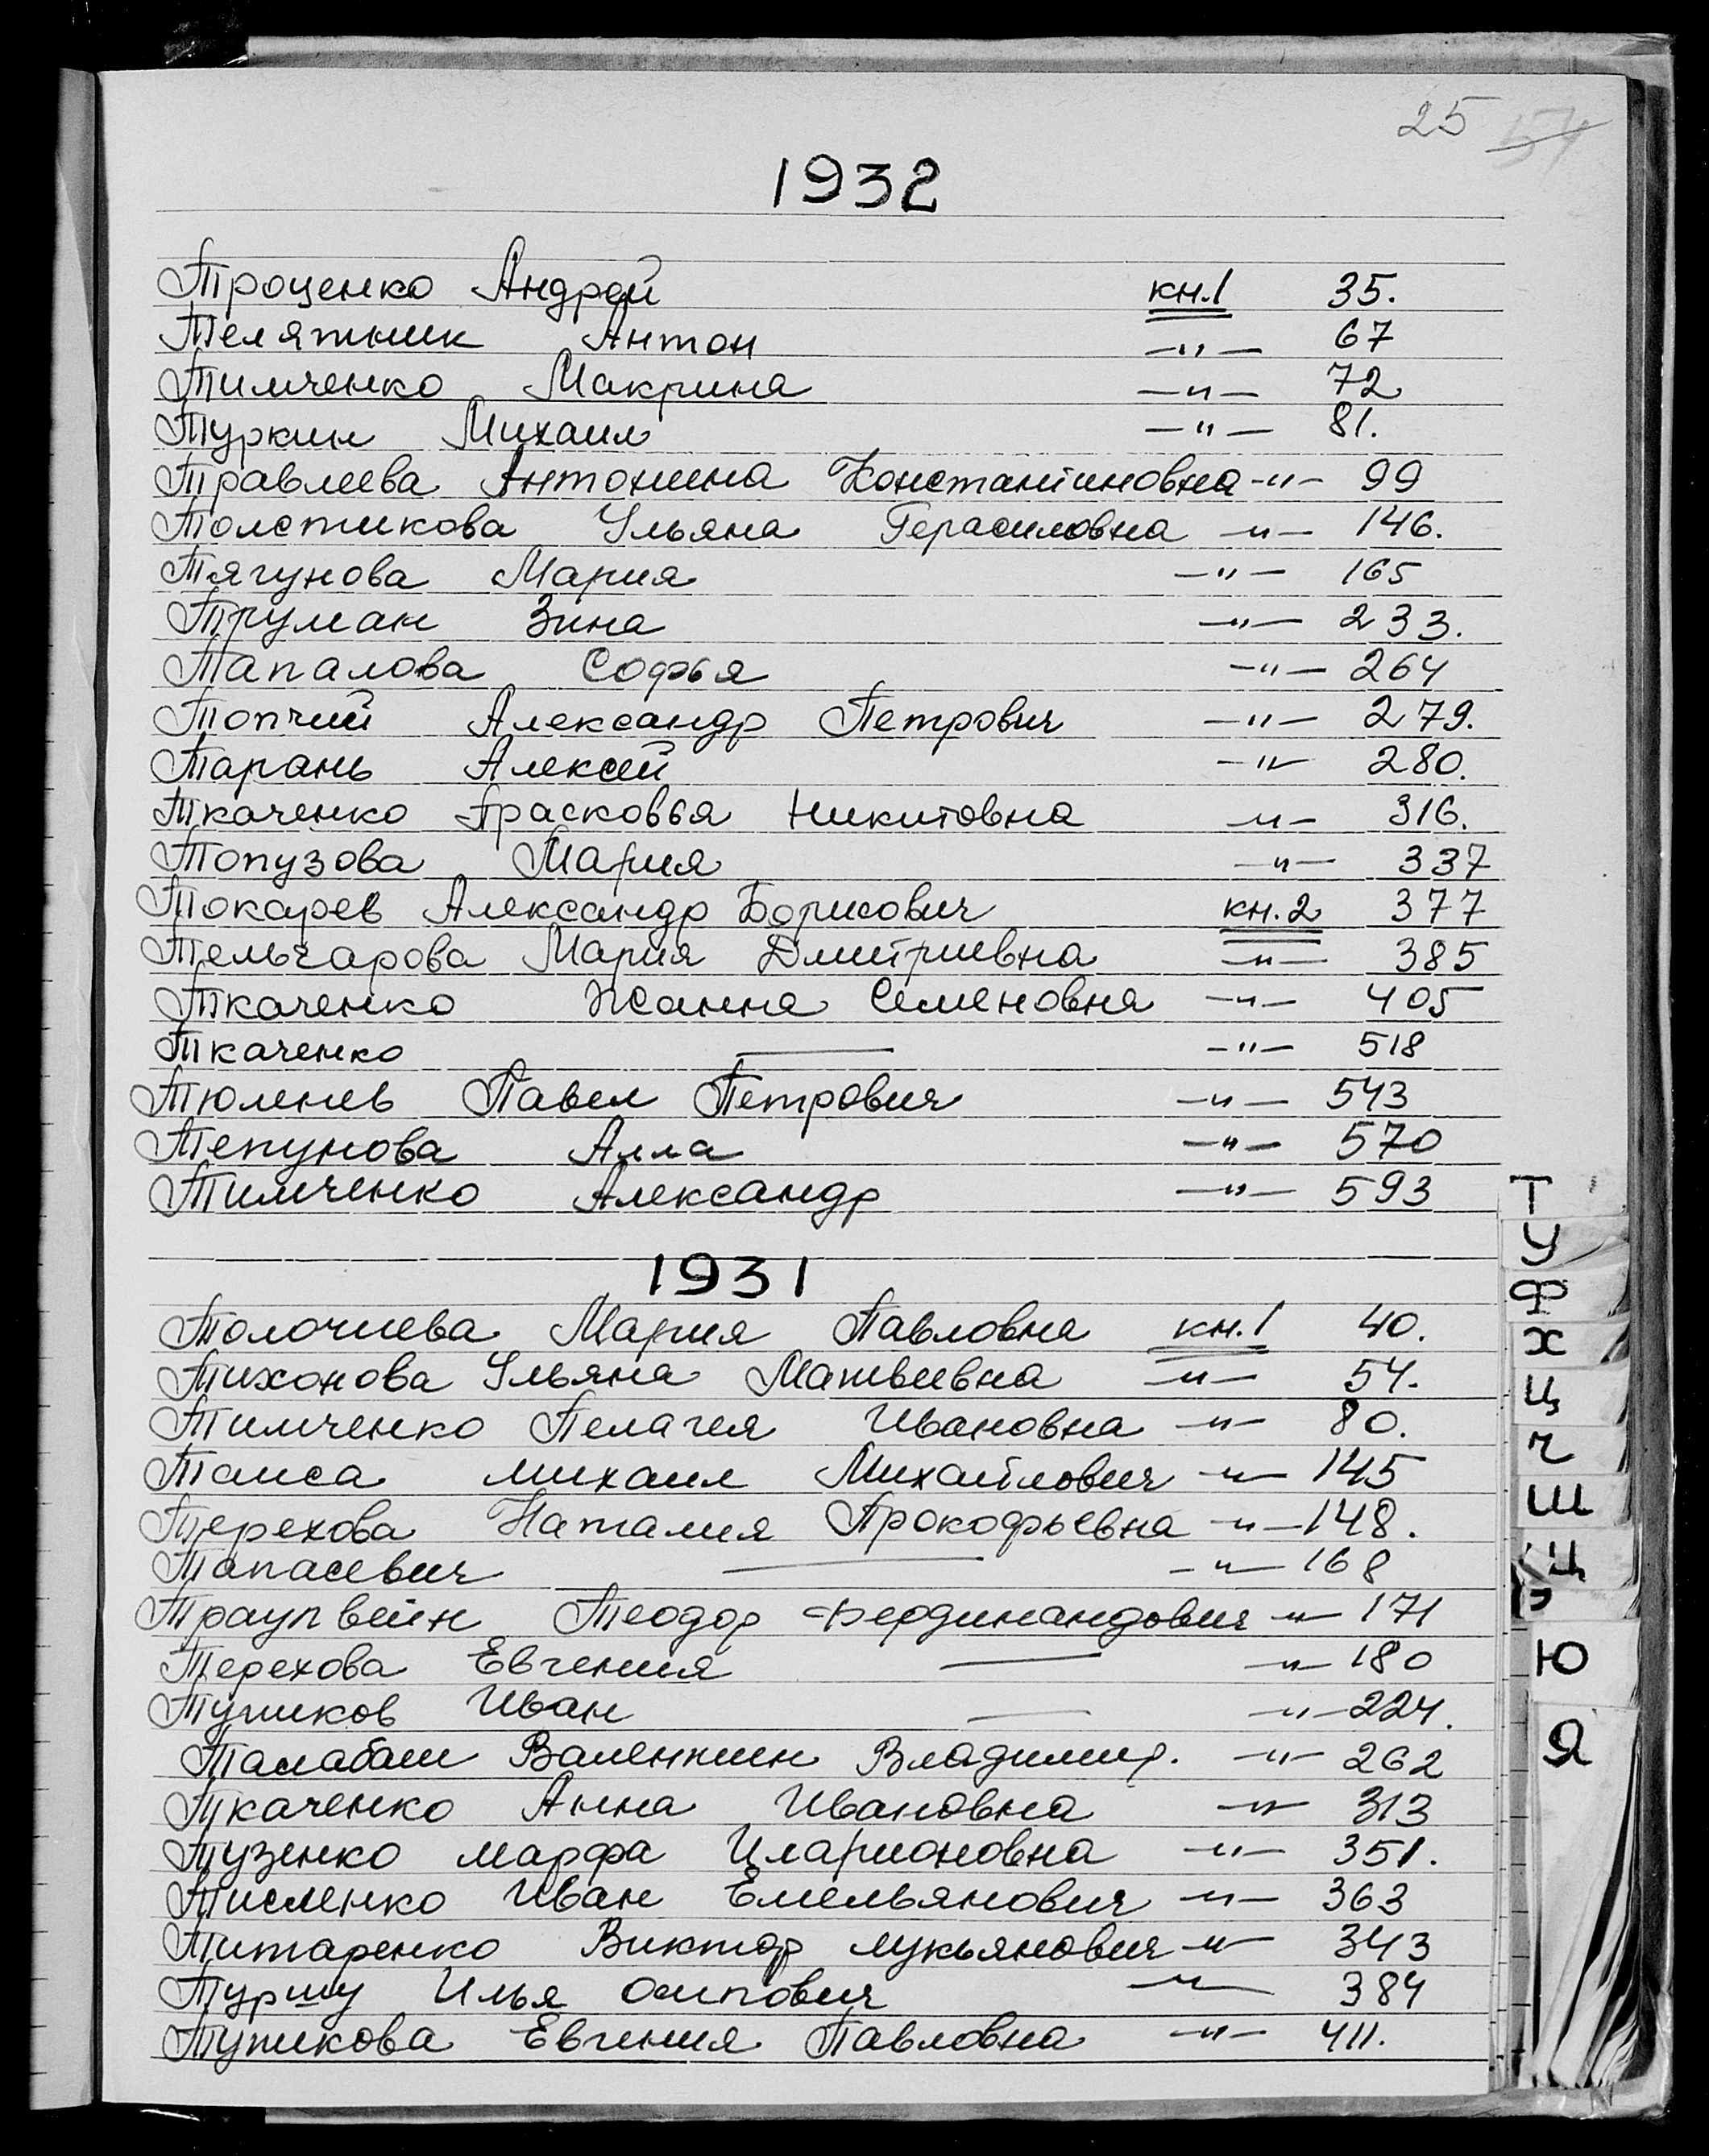 25 57
1932
Троценко Андрей кн.1 35.
Телятник Антон —"— 67
Тимченко Макрина —"— 72
Туркин Михаил —"— 81.
Травлеева Антонина Константиновна —"— 99
Толстикова Ульяна Герасимовна —"— 146.
Тягунова Мария —"— 165
Труман Зина —"— 233.
Тапалова Софья —"— 264
Топчий Александр Петрович —"— 279.
Тарань Алексей —"— 280.
Ткаченко Прасковья Никитовна —"— 316.
Топузова Мария —"— 337
Токарев Александр Борисович кн.2 377
Тельчарова Мария Дмитриевна —"— 385
Ткаченко Жанна Семеновна —"— 405
Ткаченко —— —"— 518
Тюленев Павел Петрович —"— 543
Тепунова Алла —"— 570
Тимченко Александр —"— 593
1931
Толочиева Мария Павловна кн.1 40.
Тихонова Ульяна Матвеевна —"— 54.
Тимченко Пелагея Ивановна —"— 80.
Таиса михаил Михайлович —"— 145
Терехова Наталия Прокофьевна —"— 148.
Тапасевич —— —"— 168
Траупвейн Теодор Фердинандович —"— 171
Терехова Евгения —— —"— 180
Тупиков Иван —— —"— 224.
Таслабаш Валентин Владимир. —"— 262
Ткаченко Анна Ивановна —"— 313
Тузенко марфа Иларионовна —"— 351.
Тисленко Иван Емельянович —"— 363
Титаренко Виктор лукьянович —"— 343
Туршу Илья Осипович —"— 384
Тупикова Евгения Павловна —"— 411.
Т
У
Ф
Х
Ц
Ч
Ш
Щ
Э
Ю
Я